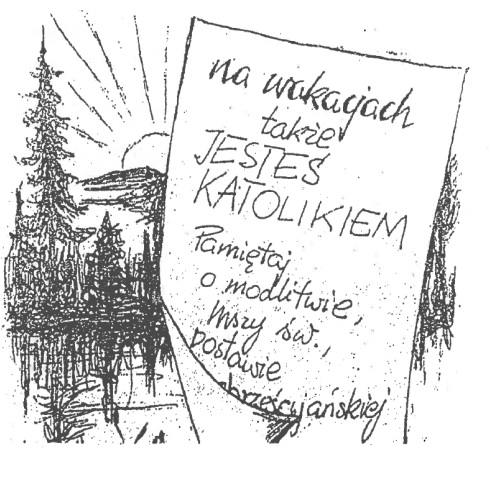 na wakacjach
także
JESTEŚ
KATOLIKIEM
Pamiętaj
o modlitwie,
Mszy św.,
postawie
chrześcijańskiej